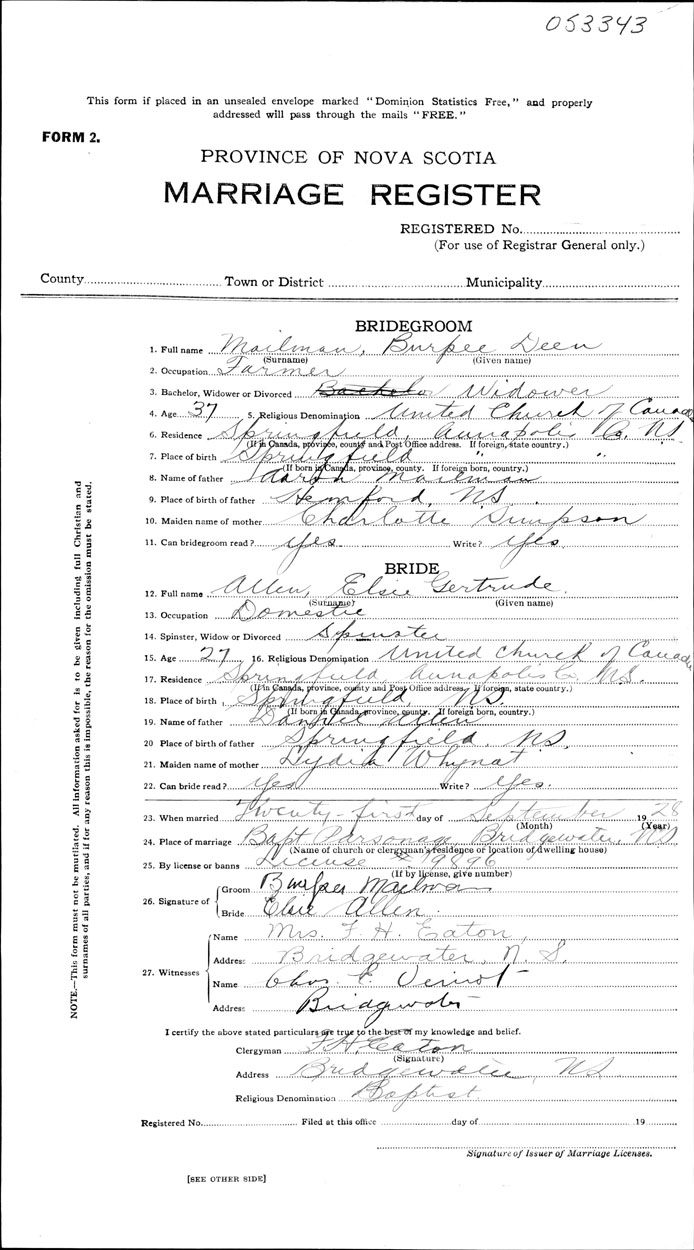 053343
This form if placed in an unsealed envelope marked "Dominion Statistics Free," and properly
addressed will pass through the mails "FREE."
FORM 2.
PROVINCE OF NOVA SCOTIA
MARRIAGE REGISTER
REGISTERED No.
(For use of Registrar General only.)
County Town or District Municipality
BRIDEGROOM
1. Full name Mailman, Burpee Deen
(Surname) (Given name)
2. Occupation Farmer
3. Bachelor, Widower or Divorced Bachelor Widower
4. Age 37 5. Religious Denomination United Church of Canada
6. Residence Springfield, Annapolis Co. NS
(If in Canada, province, county and Post Office address. If foreign, state country.)
7. Place of birth Springfield " "
(If born in Canada, province, county. If foreign born, country.)
8. Name of father Mailman
9. Place of birth of father Hemford, NS.
10. Maiden name of mother Charlotte Simpson
11. Can bridegroom read? yes Write? yes.
BRIDE
12. Full name Allen, Elsie Gertrude.
(Surname) (Given name)
13. Occupation Domestic
14. Spinster, Widow or Divorced Spinster
15. Age 27 16. Religious Denomination United Church of Canada
17. Residence Springfield Annapolis Co. NS.
(If in Canada, province, county and Post Office address. If foreign, state country.)
18. Place of birth Springfield, NS.
(If born in Canada, province, county. If foreign born, country.)
19. Name of father Daniel Allen
20 Place of birth of father Springfield, NS,
21. Maiden name of mother Lydia Whynat
22. Can bride read? Yes Write? Yes.
23. When married Twenty-first day of September 1928
(Month) (Year)
24. Place of marriage Bapt Parsonage Bridgewater, NS
(Name of church or clergyman's residence or location of dwelling house)
25. By license or banns License # 19896
(If by license, give number)
26. Signature of
Groom Burpee Mailman
Bride Elsie Allen.
27. Witnesses
Name Mrs. F. H. Eaton
Address: Bridgewater, N. S.
Name Chas. Veinot
Address: Bridgwater
I certify the above stated particulars are true to the best of my knowledge and belief.
Clergyman F. H. Eaton
(Signature)
Address Bridgewater, NS
Religious Denomination Baptist
Registered No. Filed at this office day of 19
Signature of Issuer of Marriage Licenses.
[SEE OTHER SIDE]
NOTE.—This form must not be mutilated. All information asked for is to be given including full Christian and
surnames of all parties, and if for any reason this is impossible, the reason for the omission must be stated.